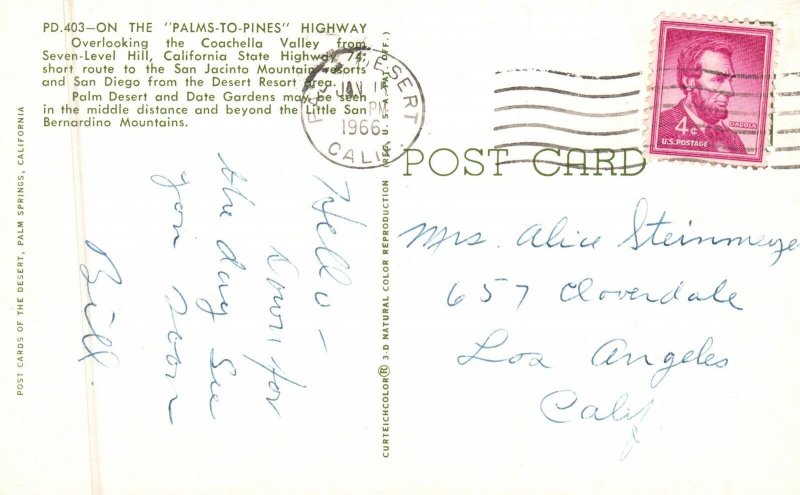 PD.403—ON THE "PALMS-TO-PINES" HIGHWAY
Overlooking the Coachella Valley from
Seven-Level Hill, California State Highway 74,
short route to the San Jacinto Mountain resorts
and San Diego from the Desert Resort Area.
Palm Desert and Date Gardens may be seen
in the middle distance and beyond the Little San
Bernardino Mountains.
POST CARDS OF THE DESERT, PALM SPRINGS, CALIFORNIA
CURTEICHCOLOR® 3-D NATURAL COLOR REPRODUCTION (REG. U.S.A. PAT. OFF.)
DESERT
JAN
PM
1966
CALIF.
LINCOLN
4¢
U.S. POSTAGE
POST CARD
Hello –
Down for
the day See
you Soon
Bill.
Mrs. Alice Steinmeyer
657 Cloverdale
Los Angeles
Calif